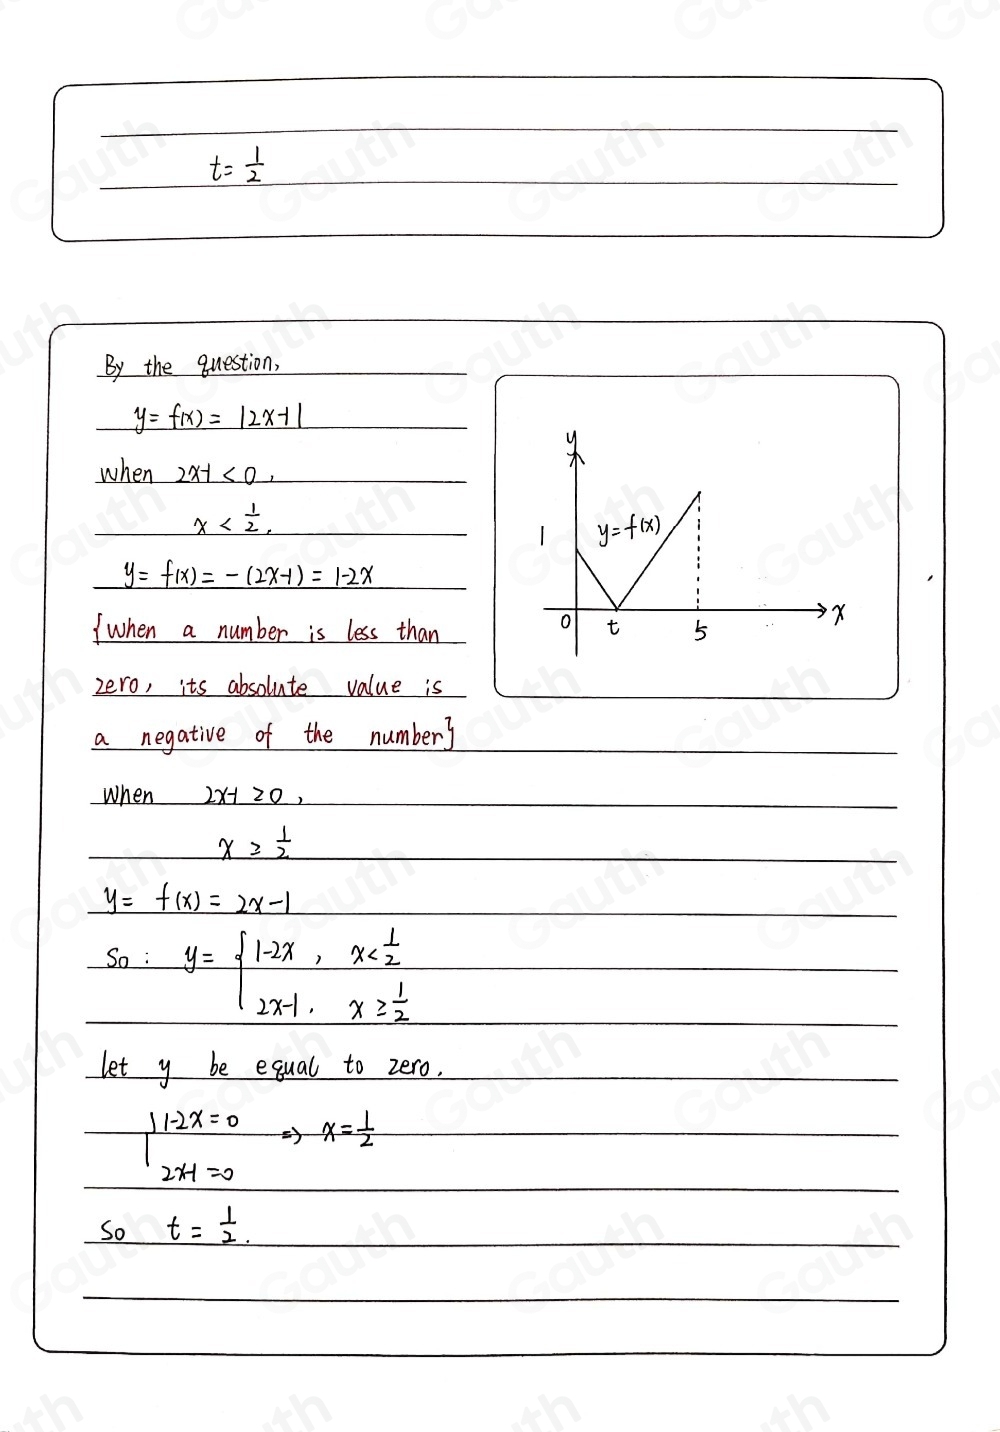 t = 1/2
By the question,
y = f(x) = |2x-1|
when 2x-1 < 0,
x < 1/2.
y = f(x) = -(2x-1) = 1-2x
{when a number is less than
zero, its absolute value is
a negative of the number}
when 2x-1 ≥ 0,
x ≥ 1/2
y = f(x) = 2x-1
So: y = { 1-2x, x < 1/2
2x-1. x ≥ 1/2
let y be equal to zero.
{ 1-2x = 0 => x = 1/2
2x-1 = 0
So t = 1/2.
y
1
y = f(x)
0 t 5 x
Gauth